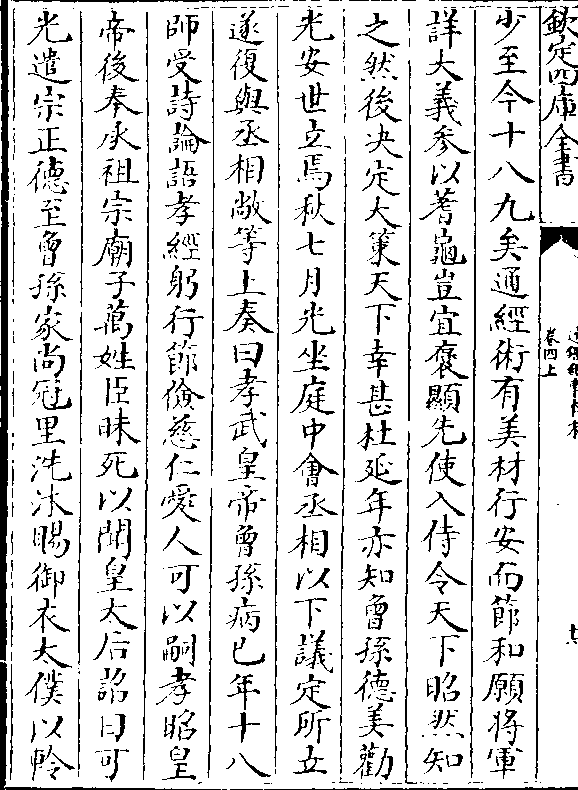 欽定四庫全書
卷四上
少至今十八九矣通經術有美材行安而節和願將軍
詳大義參以蓍龜豈宜褒顯先使入侍令天下昭然知
之然後决定大策天下幸甚杜延年亦知曾孫德美勸
光安世立焉秋七月光坐庭中會丞相以下議定所立
遂復與丞相敞等上奏曰孝武皇帝曾孫病已年十八
師受詩論語孝經躬行節儉慈仁愛人可以嗣孝昭皇
帝後奉承祖宗廟子萬姓臣昧死以聞皇太后詔曰可
光遣宗正德至曾孫家尚冠里洗沐賜御衣太僕以軨